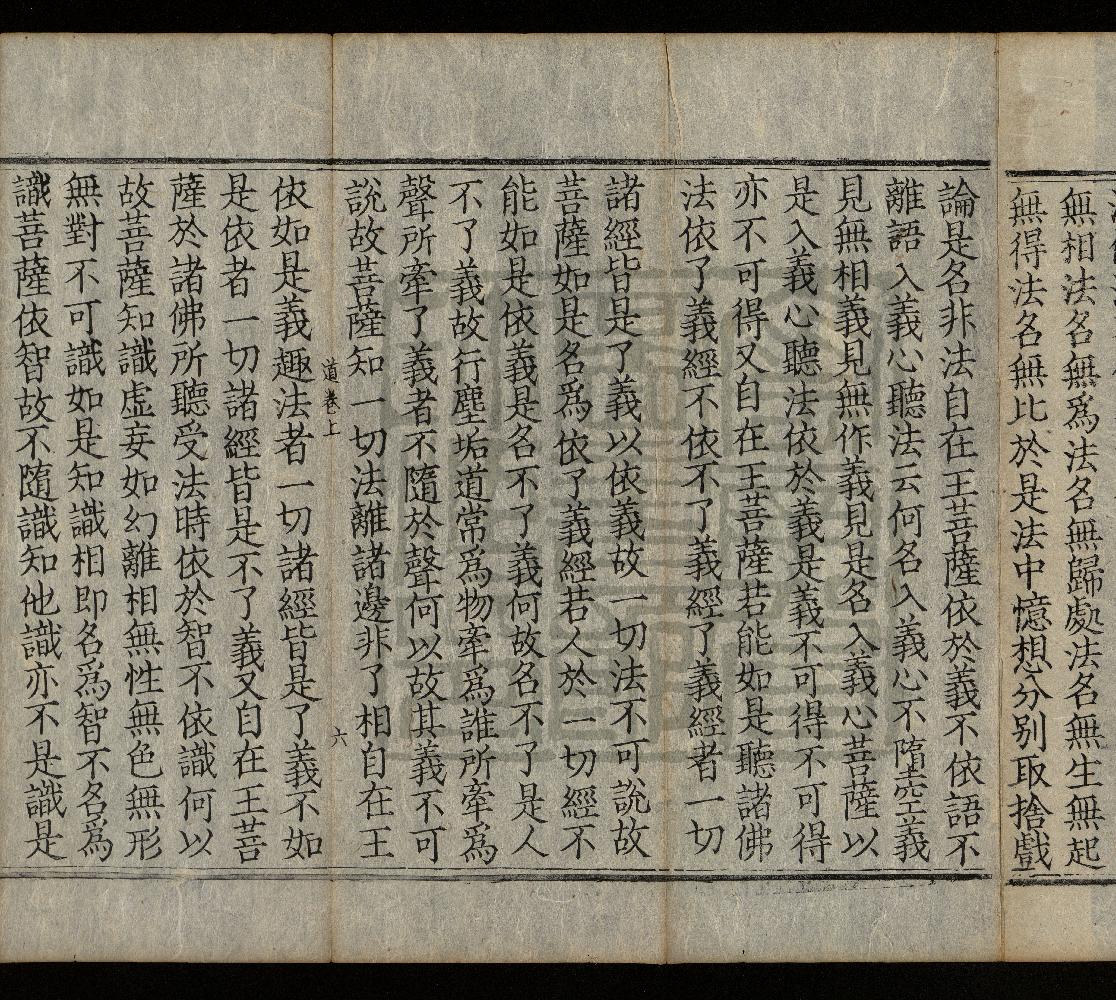 無相法名無爲法名無歸處法名無生無起
無得法名無比於是法中憶想分别取捨戲
論是名非法自在王菩薩依於義不依語不
離語入義心聽法云何名入義心不隨空義
見無相義見無作義見是名入義心菩薩以
是入義心聽法依於義是義不可得不可得
亦不可得又自在王菩薩若能如是聽諸佛
法依了義經不依不了義經了義經者一切
諸經皆是了義以依義故一切法不可說故
菩薩如是名爲依了義經若人於一切經不
能如是依義是名不了義何故名不了是人
不了義故行塵垢道常爲物牽爲誰所牽爲
聲所牽了義者不隨於聲何以故其義不可
說故菩薩知一切法離諸邊非了相自在王
道卷上 六
依如是義趣法者一切諸經皆是了義不如
是依者一切諸經皆是不了義又自在王菩
薩於諸佛所聽受法時依於智不依識何以
故菩薩知識虛妄如幻離相無性無色無形
無對不可識如是知識相即名爲智不名爲
識菩薩依智故不隨識知他識亦不是識是